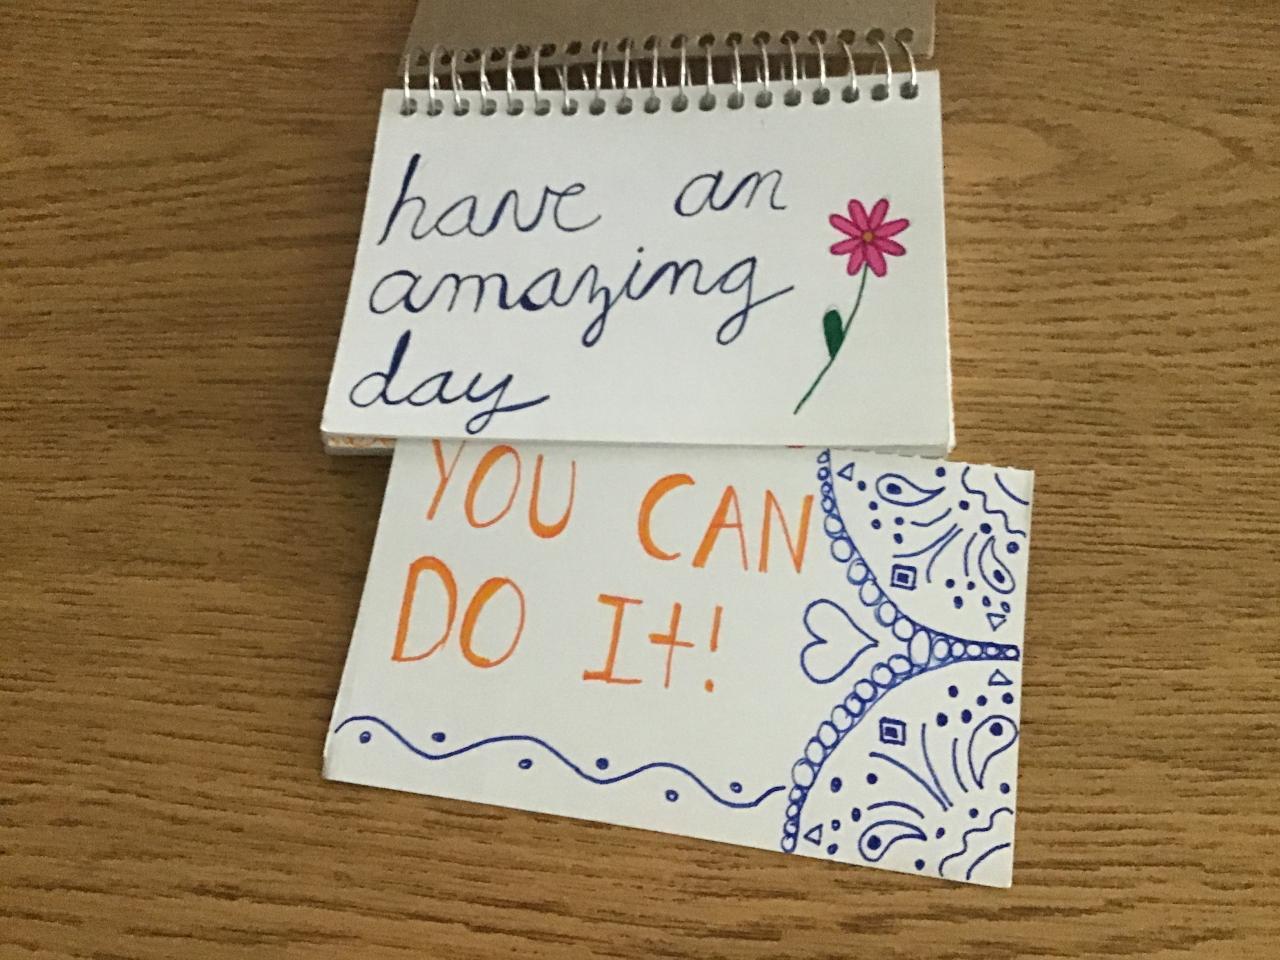 have an
amazing
day
YOU CAN
DO It!